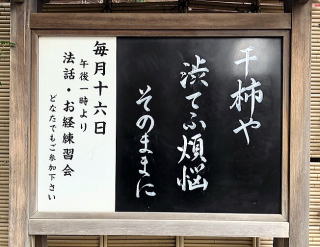 干柿や
渋てふ煩悩
そのままに
毎月十六日
午後一時より
法話・お経練習会
どなたでもご参加下さい